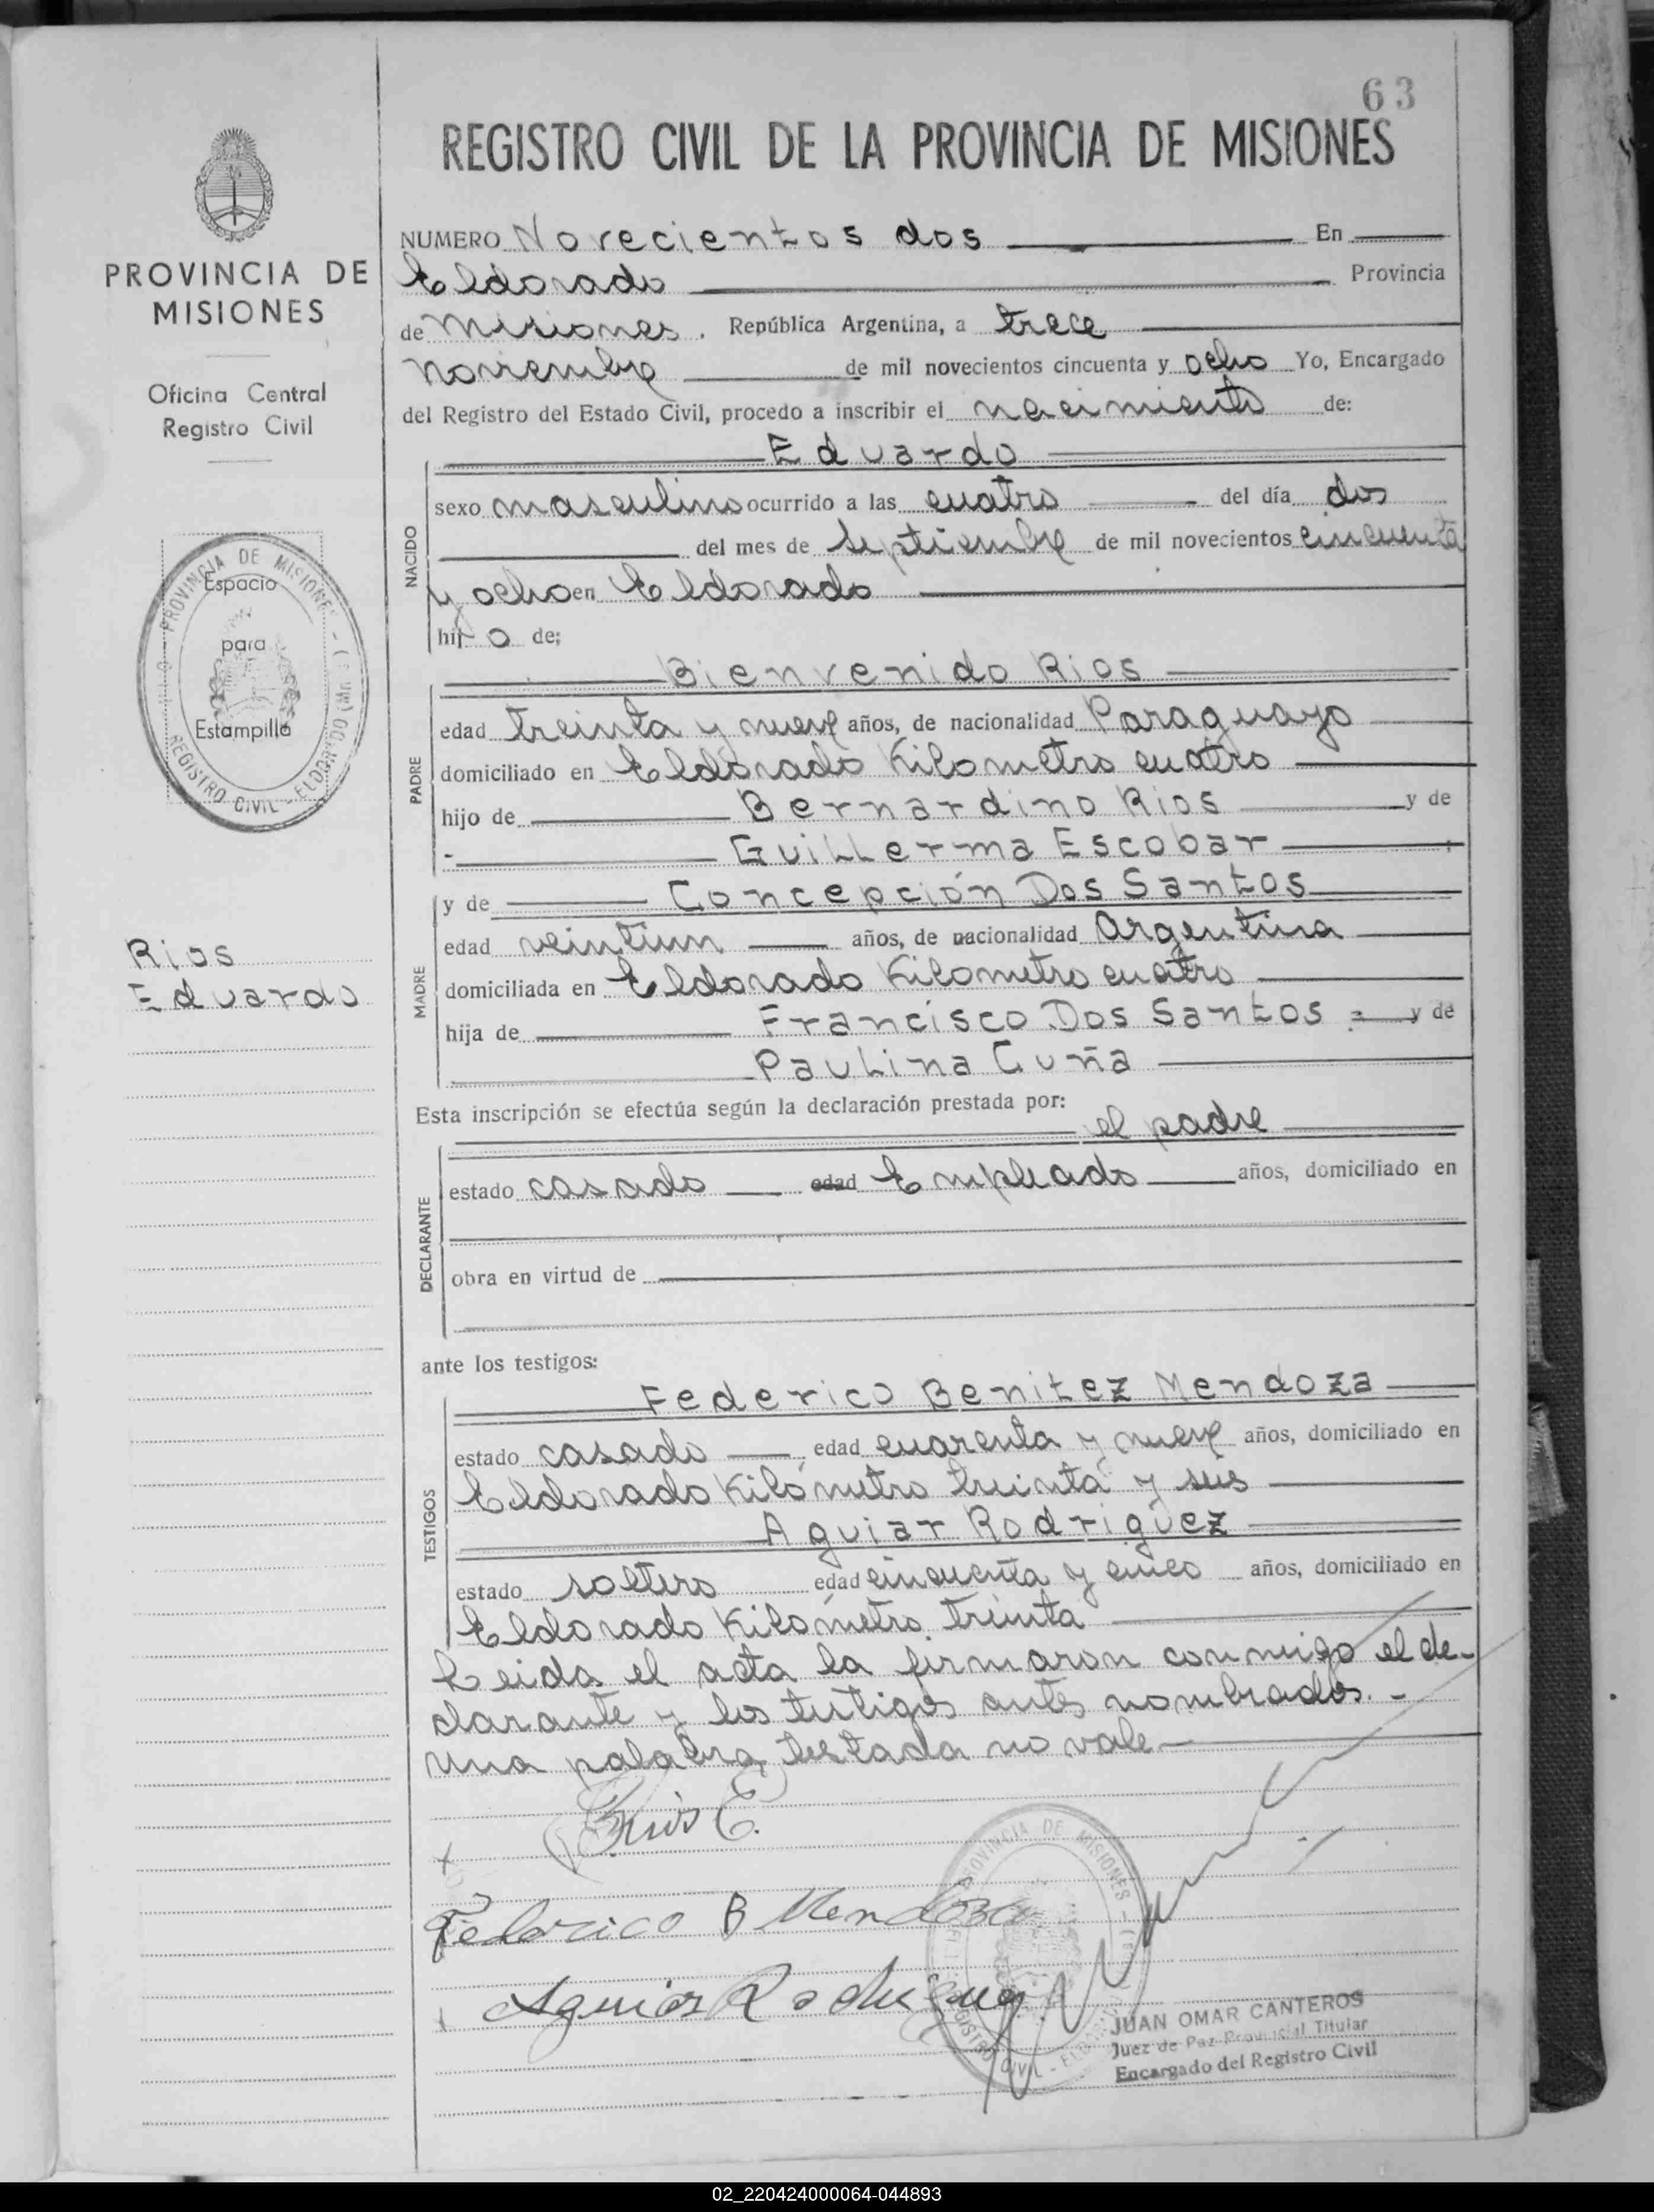 63
REGISTRO CIVIL DE LA PROVINCIA DE MISIONES
PROVINCIA DE
MISIONES
Oficina Central
Registro Civil
PROVINCIA DE MISIONES
Espacio
para
Estampilla
REGISTRO CIVIL - ELDORADO
Rios
Eduardo
NUMERO Novecientos dos En
Eldorado Provincia
de Misiones. República Argentina, a trece
noviembre de mil novecientos cincuenta y ocho Yo, Encargado
del Registro del Estado Civil, procedo a inscribir el nacimiento de:
NACIDO
Eduardo
sexo masculino ocurrido a las cuatro del día dos
del mes de Septiembre de mil novecientos cincuenta
y ocho en Eldorado
hijo de;
PADRE
Bienvenido Rios
edad treinta y nueve años, de nacionalidad Paraguayo
domiciliado en Eldorado Kilometro cuatro
hijo de Bernardino Rios y de
Guillerma Escobar
MADRE
y de Concepción Dos Santos
edad veintiun años, de nacionalidad Argentina
domiciliada en Eldorado Kilometro cuatro
hija de Francisco Dos Santos y de
Paulina Cuña
Esta inscripción se efectúa según la declaración prestada por:
el padre
DECLARANTE
estado casado edad Empleado años, domiciliado en
obra en virtud de
ante los testigos:
TESTIGOS
Federico Benitez Mendoza
estado casado edad cuarenta y nueve años, domiciliado en
Eldorado Kilómetro treinta y seis
Aguiar Rodriguez
estado soltero edad cincuenta y cinco años, domiciliado en
Eldorado Kilómetro treinta
Leida el acta la firmaron conmigo el de-
clarante y los testigos antes nombrados.-
una palabra testada no vale
Federico B Mendoza
PROVINCIA DE MISIONES
REGISTRO CIVIL
Aguiar Rodriguez
JUAN OMAR CANTEROS
Juez de Paz Provincial Titular
Encargado del Registro Civil
02_220424000064-044893